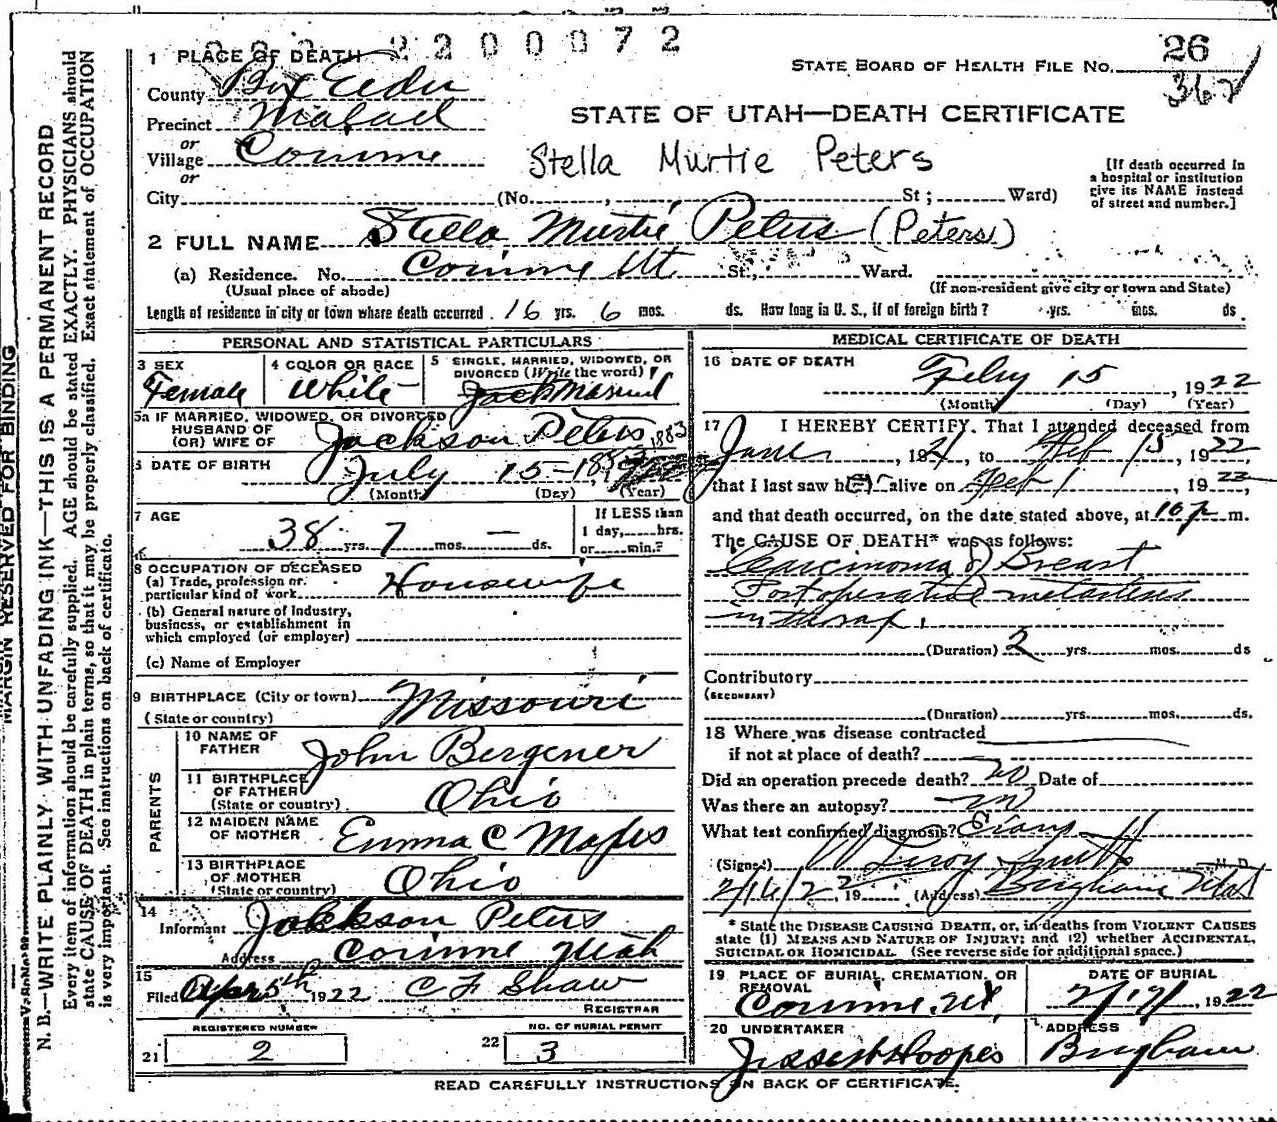 2200072
1 PLACE OF DEATH
26
STATE BOARD OF HEALTH FILE NO.
362
County Box Elder
STATE OF UTAH—DEATH CERTIFICATE
Precinct Malad
or
Village Corinne
Stella Murtie Peters
or
[If death occurred in a hospital or institution give its NAME instead of street and number.]
City (No. , St; Ward)
2 FULL NAME Stella Murtie Peters (Peters)
(a) Residence. No. Corinne Ut. St., Ward.
(Usual place of abode) (If non-resident give city or town and State)
Length of residence in city or town where death occurred 16 yrs. 6 mos. ds. How long in U. S., if of foreign birth? yrs. mos. ds.
PERSONAL AND STATISTICAL PARTICULARS
3 SEX
Female
4 COLOR OR RACE
White
5 SINGLE, MARRIED, WIDOWED, OR DIVORCED (Write the word)
Married
5a IF MARRIED, WIDOWED, OR DIVORCED
HUSBAND OF
(OR) WIFE OF Jackson Peters
1883
6 DATE OF BIRTH July 15-1883
(Month) (Day) (Year)
7 AGE
38 yrs. 7 mos. — ds.
If LESS than 1 day, hrs. or min.?
8 OCCUPATION OF DECEASED
(a) Trade, profession or particular kind of work Housewife
(b) General nature of industry, business, or establishment in which employed (or employer)
(c) Name of Employer
9 BIRTHPLACE (City or town) Missouri
(State or country)
PARENTS
10 NAME OF FATHER John Bergener
11 BIRTHPLACE OF FATHER (State or country) Ohio
12 MAIDEN NAME OF MOTHER Emma C Mapes
13 BIRTHPLACE OF MOTHER (State or country) Ohio
14
Informant Jackson Peters
Address Corinne Utah
15
Filed Apr 5th 1922 C F Shaw
REGISTRAR
REGISTERED NUMBER
21 2
NO. OF BURIAL PERMIT
22 3
MEDICAL CERTIFICATE OF DEATH
16 DATE OF DEATH
Feby 15, 1922
(Month) (Day) (Year)
17 I HEREBY CERTIFY, That I attended deceased from
June, 1921, to Feb 15, 1922
that I last saw her alive on Feb 1, 1922,
and that death occurred, on the date stated above, at 10 p m.
The CAUSE OF DEATH* was as follows:
Carcinoma of Breast
Post operative metastases
in thorax.
(Duration) 2 yrs. mos. ds
Contributory
(SECONDARY)
(Duration) yrs. mos. ds.
18 Where was disease contracted
if not at place of death?
Did an operation precede death? no Date of
Was there an autopsy? no
What test confirmed diagnosis?
(Signed) W Leroy Smith M. D.
2/16/22, 19 (Address) Brigham Utah
* State the DISEASE CAUSING DEATH, or, in deaths from VIOLENT CAUSES state (1) MEANS AND NATURE OF INJURY; and (2) whether ACCIDENTAL, SUICIDAL OR HOMICIDAL. (See reverse side for additional space.)
19 PLACE OF BURIAL, CREMATION, OR REMOVAL
Corinne, Ut.
DATE OF BURIAL
2/17/, 1922
20 UNDERTAKER
Hoopes
ADDRESS
Brigham
READ CAREFULLY INSTRUCTIONS ON BACK OF CERTIFICATE.
MARGIN RESERVED FOR BINDING
N. B.—WRITE PLAINLY WITH UNFADING INK—THIS IS A PERMANENT RECORD
Every item of information should be carefully supplied. AGE should be stated EXACTLY. PHYSICIANS should
state CAUSE OF DEATH in plain terms, so that it may be properly classified. Exact statement of OCCUPATION
is very important. See instructions on back of certificate.